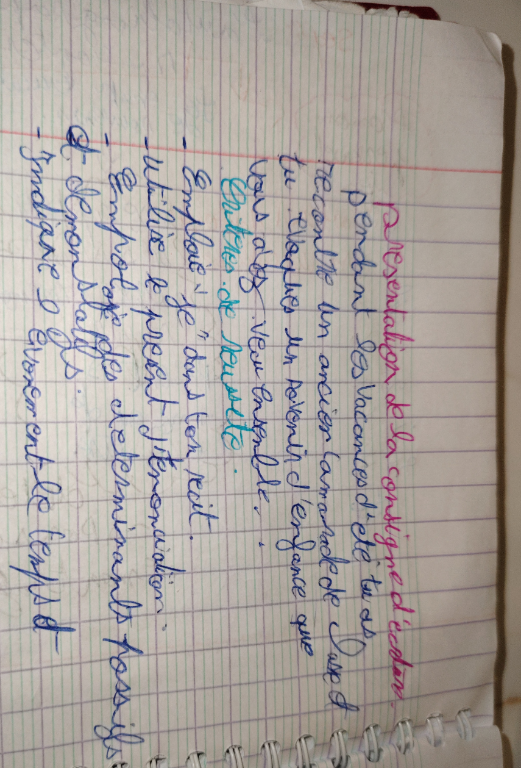 presentation de la consigne d'ecdur
pendant les vacances d'été tu as
rencontre un ancien camarade de
tu evoques un sovenir d'enfance que
vous avez vecu ensemble.
Criteres de reussete.
- Emploie "je" dans ton recit.
- Utilise le present d'enonciation.
- Emploie des determinants possifs
et demonstratifs.
- Indique l'evenement le temps et